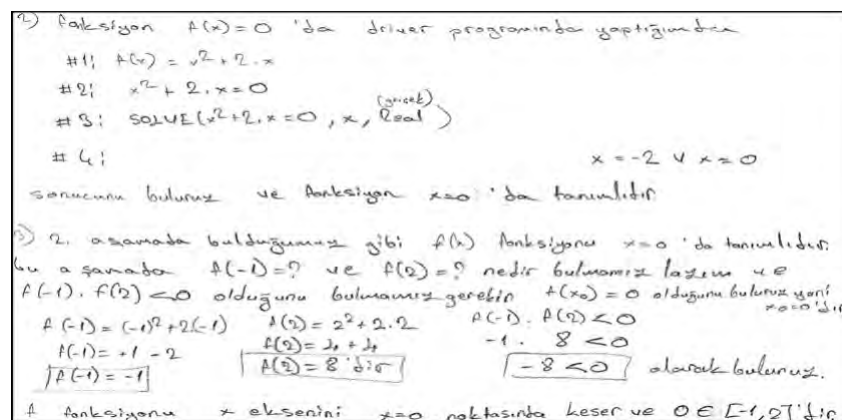 2) fonksiyon f(x)=0 'da driver programında yaptığımızdan
#1: f(x) = x² + 2.x
#2: x² + 2.x = 0
#3: SOLVE(x²+2.x=0, x, Real) (gerçek)
#4: x = -2 ∨ x = 0
sonucunu buluruz ve fonksiyon x=0 'da tanımlıdır
3) 2. aşamada bulduğumuz gibi f(x) fonksiyonu x=0 'da tanımlıdır.
bu aşamada f(-1)=? ve f(2)=? nedir bulmamız lazım ve
f(-1).f(2)<0 olduğunu bulmamız gerekir f(x₀)=0 olduğunu buluruz yani x₀=0'dır
f(-1) = (-1)²+2(-1) f(2) = 2²+2.2 f(-1).f(2)<0
f(-1) = +1 - 2 f(2) = 4 + 4 -1 . 8 <0
f(-1) = -1 f(2) = 8 'dir -8 <0 olarak buluruz.
f fonksiyonu x eksenini x=0 noktasında keser ve 0 ∈ [-1,2]'dir